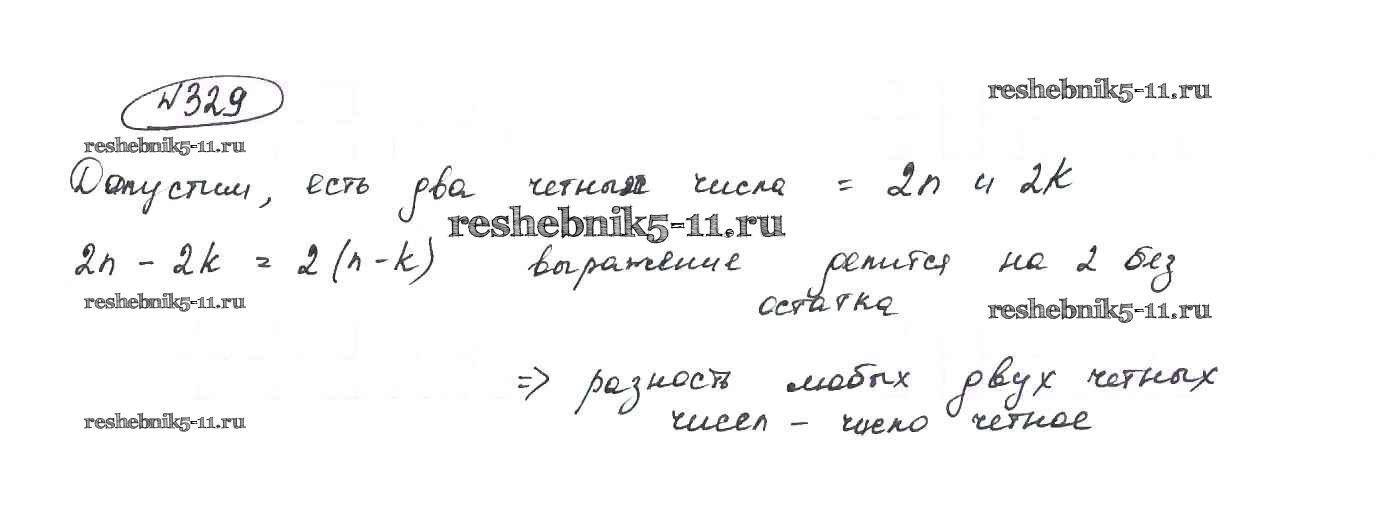 №329
reshebnik5-11.ru
reshebnik5-11.ru
Допустим, есть два четных числа = 2n и 2k
reshebnik5-11.ru
2n - 2k = 2(n-k) выражение делится на 2 без
остатка
reshebnik5-11.ru
reshebnik5-11.ru
=> разность любых двух четных
чисел - число четное
reshebnik5-11.ru